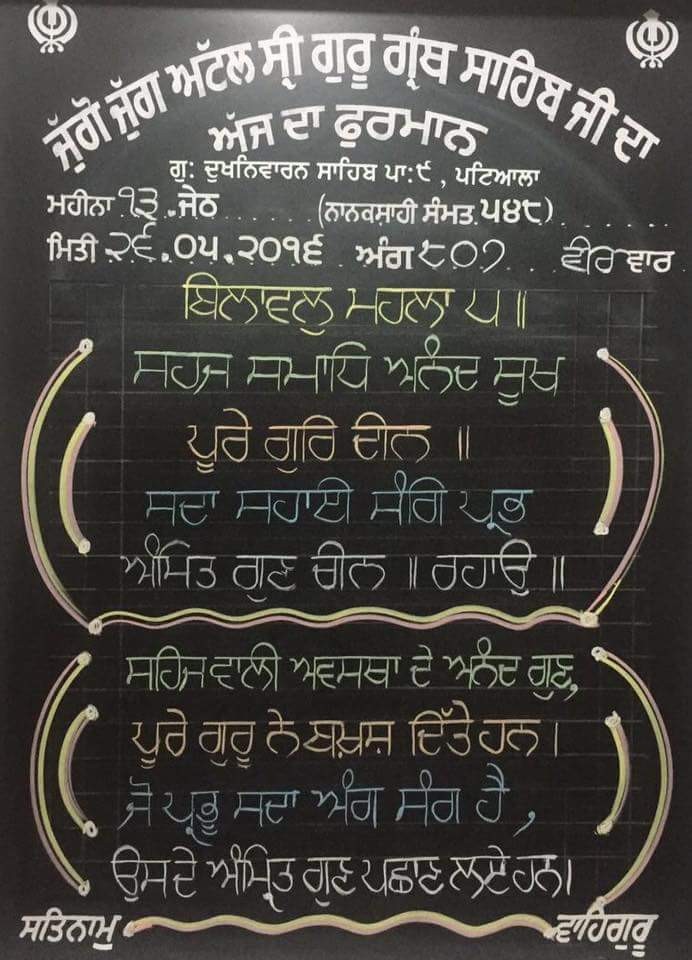 ਜੁੱਗੋ ਜੁੱਗ ਅਟੱਲ ਸ੍ਰੀ ਗੁਰੂ ਗ੍ਰੰਥ ਸਾਹਿਬ ਜੀ ਦਾ
ਅੱਜ ਦਾ ਫੁਰਮਾਨ
ਗੁ: ਦੁਖਨਿਵਾਰਨ ਸਾਹਿਬ ਪਾ:੯ , ਪਟਿਆਲਾ
ਮਹੀਨਾ ੧੩ ਜੇਠ (ਨਾਨਕਸ਼ਾਹੀ ਸੰਮਤ ੫੪੮)
ਮਿਤੀ ੨੬.੦੫.੨੦੧੬ ਅੰਗ ੮੦੭ ਵੀਰ ਵਾਰ
ਬਿਲਾਵਲੁ ਮਹਲਾ ੫॥
ਸਹਜ ਸਮਾਧਿ ਅਨੰਦ ਸੂਖ
ਪੂਰੇ ਗੁਰਿ ਦੀਨ ॥
ਸਦਾ ਸਹਾਈ ਸੰਗਿ ਪ੍ਰਭ
ਅੰਮ੍ਰਿਤ ਗੁਣ ਚੀਨ ॥ ਰਹਾਉ ॥
ਸਹਿਜ ਵਾਲੀ ਅਵਸਥਾ ਦੇ ਅਨੰਦ ਗੁਣ,
ਪੂਰੇ ਗੁਰੂ ਨੇ ਬਖ਼ਸ਼ ਦਿੱਤੇ ਹਨ।
ਜੋ ਪ੍ਰਭੂ ਸਦਾ ਅੰਗ ਸੰਗ ਹੈ ,
ਉਸਦੇ ਅੰਮ੍ਰਿਤ ਗੁਣ ਪਛਾਣ ਲਏ ਹਨ।
ਸਤਿਨਾਮੁ ਵਾਹਿਗੁਰੂ